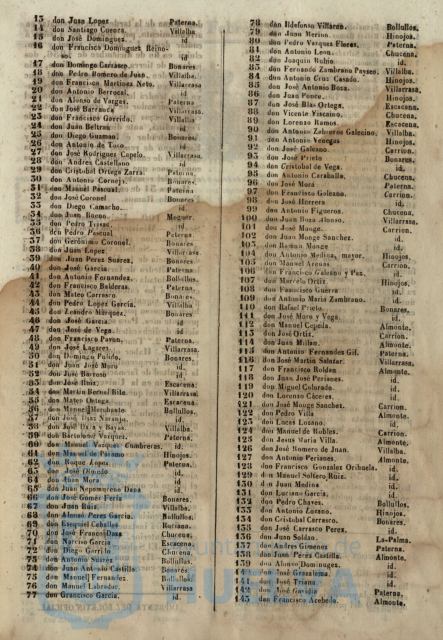 13 don Juan Lopez Paterna.
14 don Santiago Cuenca. Villalba
15 don José Dominguez. id.
16 don Francisco Dominguez Reino-
so. id.
17 don Domingo Carrasco. Bonares
18 don Pedro Romero de Juan. Villalba.
19 don Francisco Martinez Neto. Villarrasa
20 don Antonio Berrocal. id.
21 don Alonso de Vargas. Paterna
22 don José Barranca Villarrasa.
23 don Francisco Garrido. Villalba
24 don Juan Beltran id.
25 don Diego Guzman. Bonares.
26 don Antonio de Toro. id.
27 don José Rodriguez Capelo. Villarrasa.
28 don Andres Castellano id.
29 don Cristobal Ortega Zarza. Paterna.
30 don Antonio Cornejo. Bonares.
31 don Manuel Pascual. Paterna.
32 don José Coronel Bonares
33 don Diego Camacho. id.
34 don Juan Bueno. Moguer.
35 don Pedro id.
36 don Pedro Pascual. Paterna.
37 don Gerónimo Coronel. Bonares.
38 don Juan Lopez. Villarrasa.
39 don Juan Perez Suarez. Bonares.
40 don José Garcia Paterna.
41 don Antonio Fernandez. Bollullos.
42 don Francisco Balderas. Paterna.
43 don Mateo Carrasco. Bonares.
44 don Pedro Lopez Garcia. Villalba
45 don Leandro Marquez. Bonares.
46 don José Garcia. id.
47 don José de Vega. id
48 don Francisco Pavon. Paterna.
49 don José Lagares. Villarrasa.
50 don Domingo Pulido. Bonares.
51 don Juan José Moro id.
52 don José id.
53 don José Ruiz. Escacena.
54 don Martin Bernal Villarrasa
55 don Mateo Ortega. Escacena.
56 don Manuel Merchante. Bollullos.
57 don José Diaz Naranjo. id.
58 don José y Bayas. Villalba.
59 don Bartolomé Vazquez. Paterna.
60 don Manuel Vazquez Cumbreras. id.
61 don Manuel de Hinojos.
62 don Roque Lopez Paterna.
63 don José id.
64 don Juan Mora id.
65 don Juan Nepomuceno Dana id.
66 don José Gomez Feria Bonares.
67 don Juan Ruiz. Villalba.
68 don Alonso Perez Garcia. Bollullos.
69 don Esequiel Ceballos Rociana.
70 don José Franco Dana Chucena.
71 don Narciso Garcia Escacena.
72 don Diego Garrido Chucena.
73 don Antonio Suarez Bollullos.
74 don Juan Antonio Castillo Bonares.
75 don Manuel Fernandez. Bollullos.
76 don Manuel Labrador. Villarrasa
77 don Francisco Garcia. id.
78 don Ildefonso Villaran. Bollullos.
79 don Juan Merino. Hinojos.
80 don Pedro Vazquez Flores. Paterna.
81 don Antonio Leon. Chucena.
82 don Joaquin Rubio. id.
83 don Fernando Zambrano Payseo. Villalba.
84 don Antonio Cruz Casado. Hinojos.
85 don José Antonio Boza. Villarrasa.
86 don Juan Ponce. Hinojos.
87 don José Blas Ortega. Escacena.
88 don Vicente Viscaino. Chucena.
89 don Lorenzo Ramos Escacena.
90 don Antonio Zambrano Galecino. Villalba.
91 don Antonio Venegas Hinojos.
92 don José Galeano. Carrion.
93 don José Prieto Bonares.
94 don Cristobal de Vega. id.
95 don Antonio Caraballa. Chucena.
96 don José Mora Paterna.
97 don Francisco Galeano. Carrion.
98 don José Herrera id.
99 don Antonio Figueroa. Chucena.
100 don Juan Boza Alonso. Villarrasa.
101 don José Monge. Carrion.
102 don Juan Monge Sanchez. id.
103 don Ramon Monge id.
104 don Antonio Medina, mayor. Hinojos.
105 don Manuel Arenas Carrion.
106 don Francisco Galeano y Paz. id.
107 don Marcelo Ortiz Hinojos.
108 don Francisco Guerra id.
109 don Antonio Maria Zambrano. id.
110 don Rafael Prieto. Bonares.
111 don José Moro y Vega. id.
112 don Manuel Cepeda. Almonte.
113 don José Ortiz. Carrion.
114 don Juan Millan. Almonte.
115 don Antonio Fernandez Gil. Paterna.
116 don José Martin Salazar. Villarrasa.
117 don Francisco Roldan Almonte.
118 don Juan José Periañes. id.
119 don Miguel Colorado. id.
120 don Lorenzo Cáceres. id.
121 don José Monge Sanchez. Carrion.
122 don Pedro Villa Almonte.
123 don Lucas Lozano. id.
124 don Manuel de Robles. Carrion.
125 don Jesus Maria Villa. Almonte.
126 don José Romero de Juan. Villalba.
127 don Antonio Periañes. Almonte.
128 don Francisco Gonzalez Orihuela. id.
129 don Manuel Soltero Ruiz. id.
130 don Juan Medina id.
131 don Luciano Garcia. id.
132 don Pedro Chaves. Bollullos.
133 don Antonio Lozano. Hinojos.
134 don Cristobal Carrasco. Bonares.
135 don José Carrasco Perez. id.
136 don Juan Soldan. La-Palma.
137 don Andres Gimenez Paterna.
138 don Juan Perez Castilla Almonte.
139 don Alonso Dominguez. id.
140 don José id.
141 don José Triana id.
142 don José Gavidia Paterna.
143 don Francisco Acebedo. Almonte.